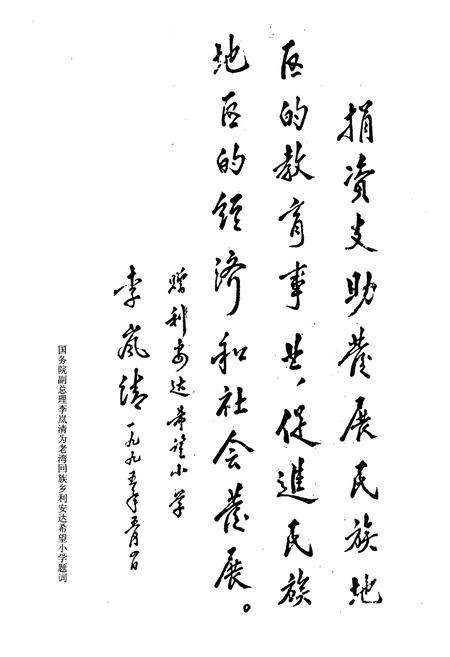 捐资支助发展民族地
区的教育事业，促進民族
地区的经济和社会发展。
赠利安达希望小学
李岚清一九九五年五月
国务院副总理李岚清为老湾回族乡利安达希望小学题词